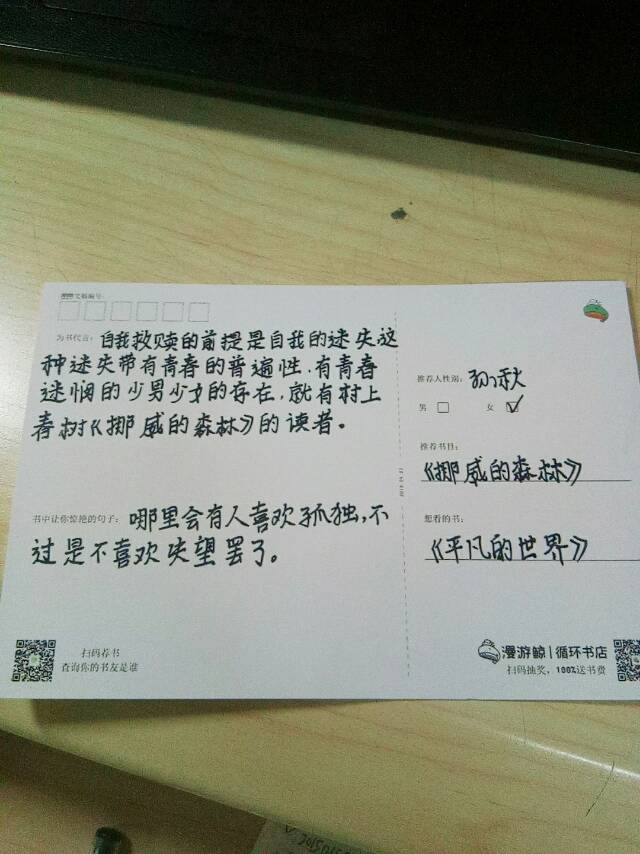 文稿编号:
为书代言: 自我救赎的前提是自我的迷失这
种迷失带有青春的普遍性,有青春
迷惘的少男少女的存在,就有村上
春树《挪威的森林》的读者。
书中让你惊艳的句子: 哪里会有人喜欢孤独,不
过是不喜欢失望罢了。
扫码荐书
查询你的书友是谁
推荐人性别: 孙秋
男 女
推荐书目:
《挪威的森林》
想看的书:
《平凡的世界》
漫游鲸|循环书店
扫码抽奖,100%送书费